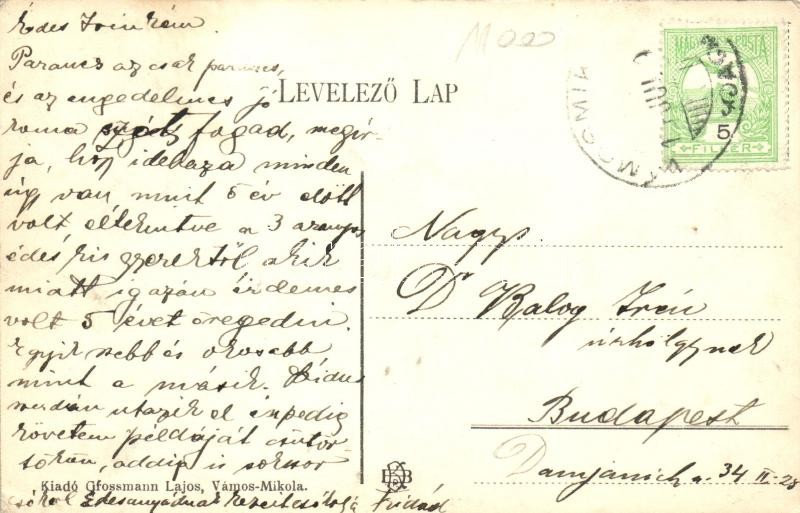 Édes Irénkém.
Parancs az csak parancs,
és az engedelmes jó
roma szót fogad, megír-
ja, hogy idehaza minden
úgy van, mint 5 év előtt
volt eltekintve a 3 aranyos
édes kis gyerektől akik
miatt igazán érdemes
volt 5 évet öregedni.
Egyik szebb és okosabb
mint a másik.
szerdán utazik el én pedig
követem példáját csütör-
tökön, addig is sokszor
csókol Édesanyádnak kezeit csókolja
LEVELEZŐ LAP
MAGYAR POSTA
5
FILLÉR
Nagys.
Dr Kalog Irén
úrhölgynek
Budapest
Damjanich u. 34 II. 28
Kiadó Grossmann Lajos, Vámos-Mikola.